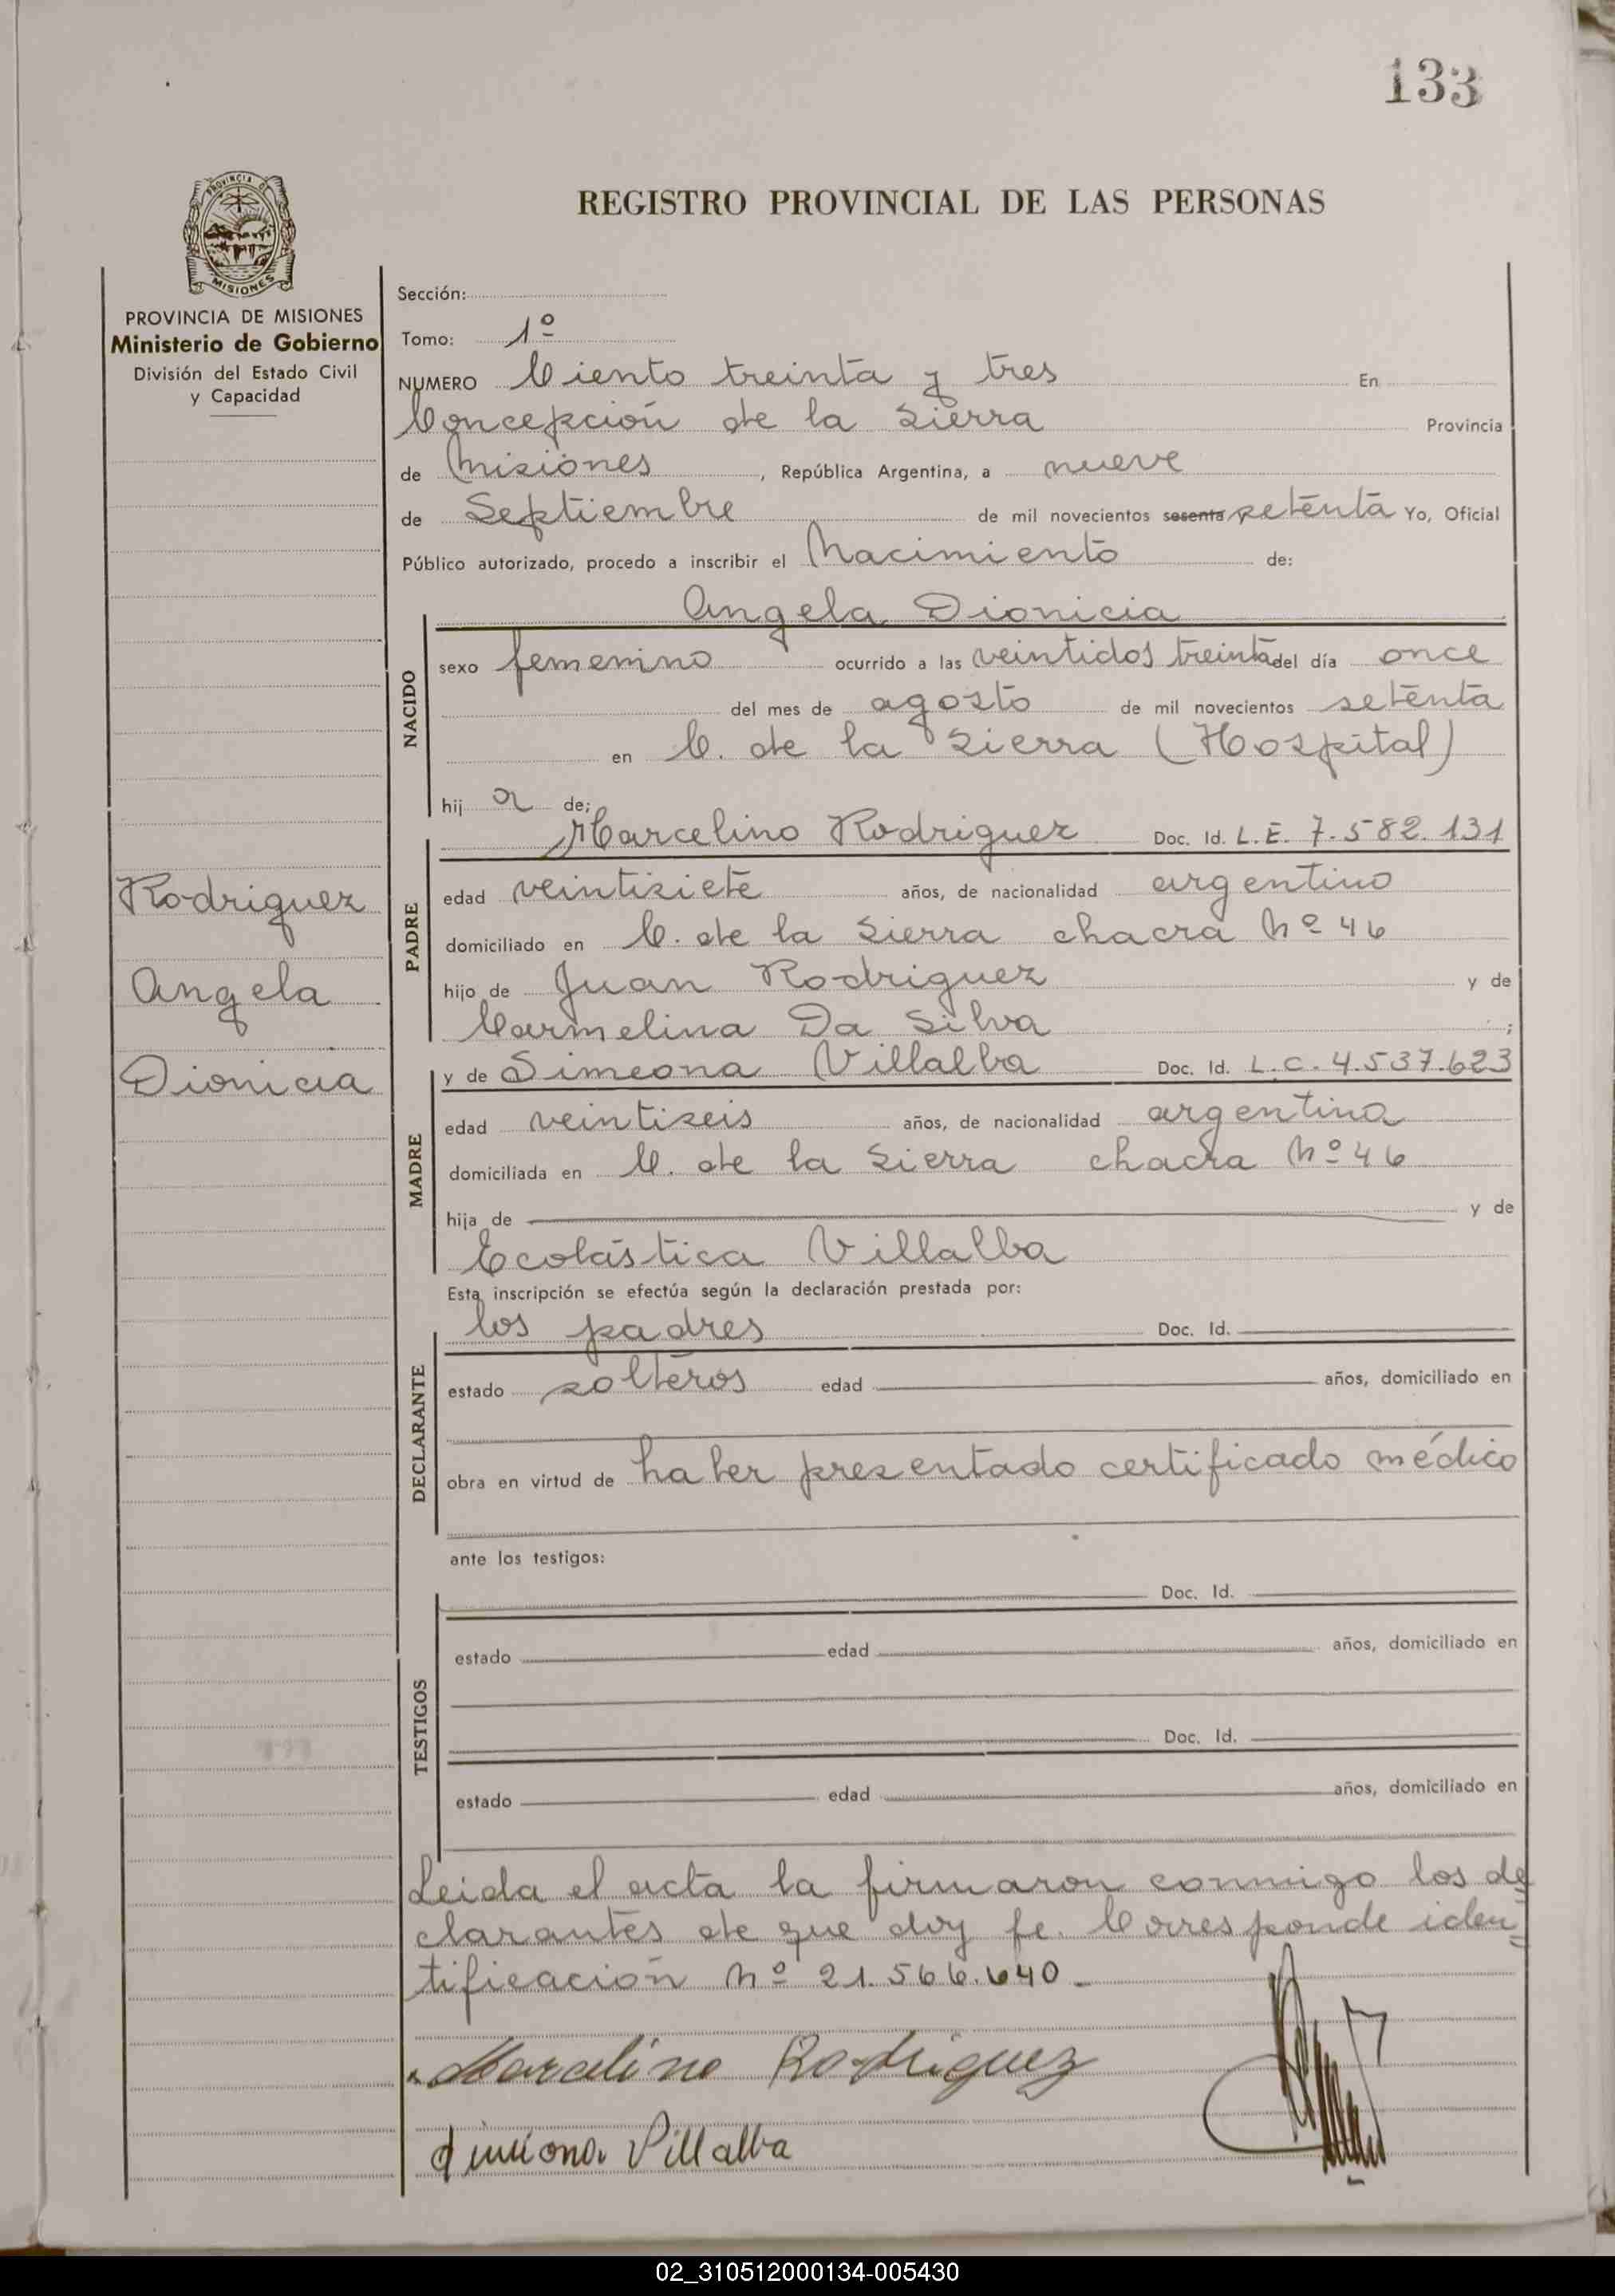 133
REGISTRO PROVINCIAL DE LAS PERSONAS
PROVINCIA DE
MISIONES
PROVINCIA DE MISIONES
Ministerio de Gobierno
División del Estado Civil
y Capacidad
Rodriguez
Angela
Dionicia
Sección:
Tomo: 1º
NUMERO Ciento treinta y tres En
Concepción de la Sierra Provincia
de Misiones, República Argentina, a nueve
de Septiembre de mil novecientos sesenta setenta Yo, Oficial
Público autorizado, procedo a inscribir el Nacimiento de:
Angela Dionicia
NACIDO
sexo femenino ocurrido a las veintidos treinta del día once
del mes de agosto de mil novecientos setenta
en C. de la Sierra (Hospital)
hij a de:
Marcelino Rodriguez Doc. Id. L.E. 7.582.131
PADRE
edad veintisiete años, de nacionalidad argentino
domiciliado en C. de la Sierra chacra Nº 46
hijo de Juan Rodriguez y de
Carmelina Da Silva ;
y de Simeona Villalba Doc. Id. L.C. 4.537.623
MADRE
edad veintiseis años, de nacionalidad argentina
domiciliada en C. de la Sierra chacra Nº 46
hija de y de
Ecolástica Villalba
Esta inscripción se efectúa según la declaración prestada por:
los padres Doc. Id.
DECLARANTE
estado solteros edad años, domiciliado en
obra en virtud de haber presentado certificado médico
ante los testigos:
Doc. Id.
TESTIGOS
estado edad años, domiciliado en
Doc. Id.
estado edad años, domiciliado en
Leida el acta la firmaron conmigo los de
clarantes de que doy fe. Corresponde iden=
tificación Nº 21.566.640.-
Marcelino Rodriguez
Simiona Villalba
02_310512000134-005430